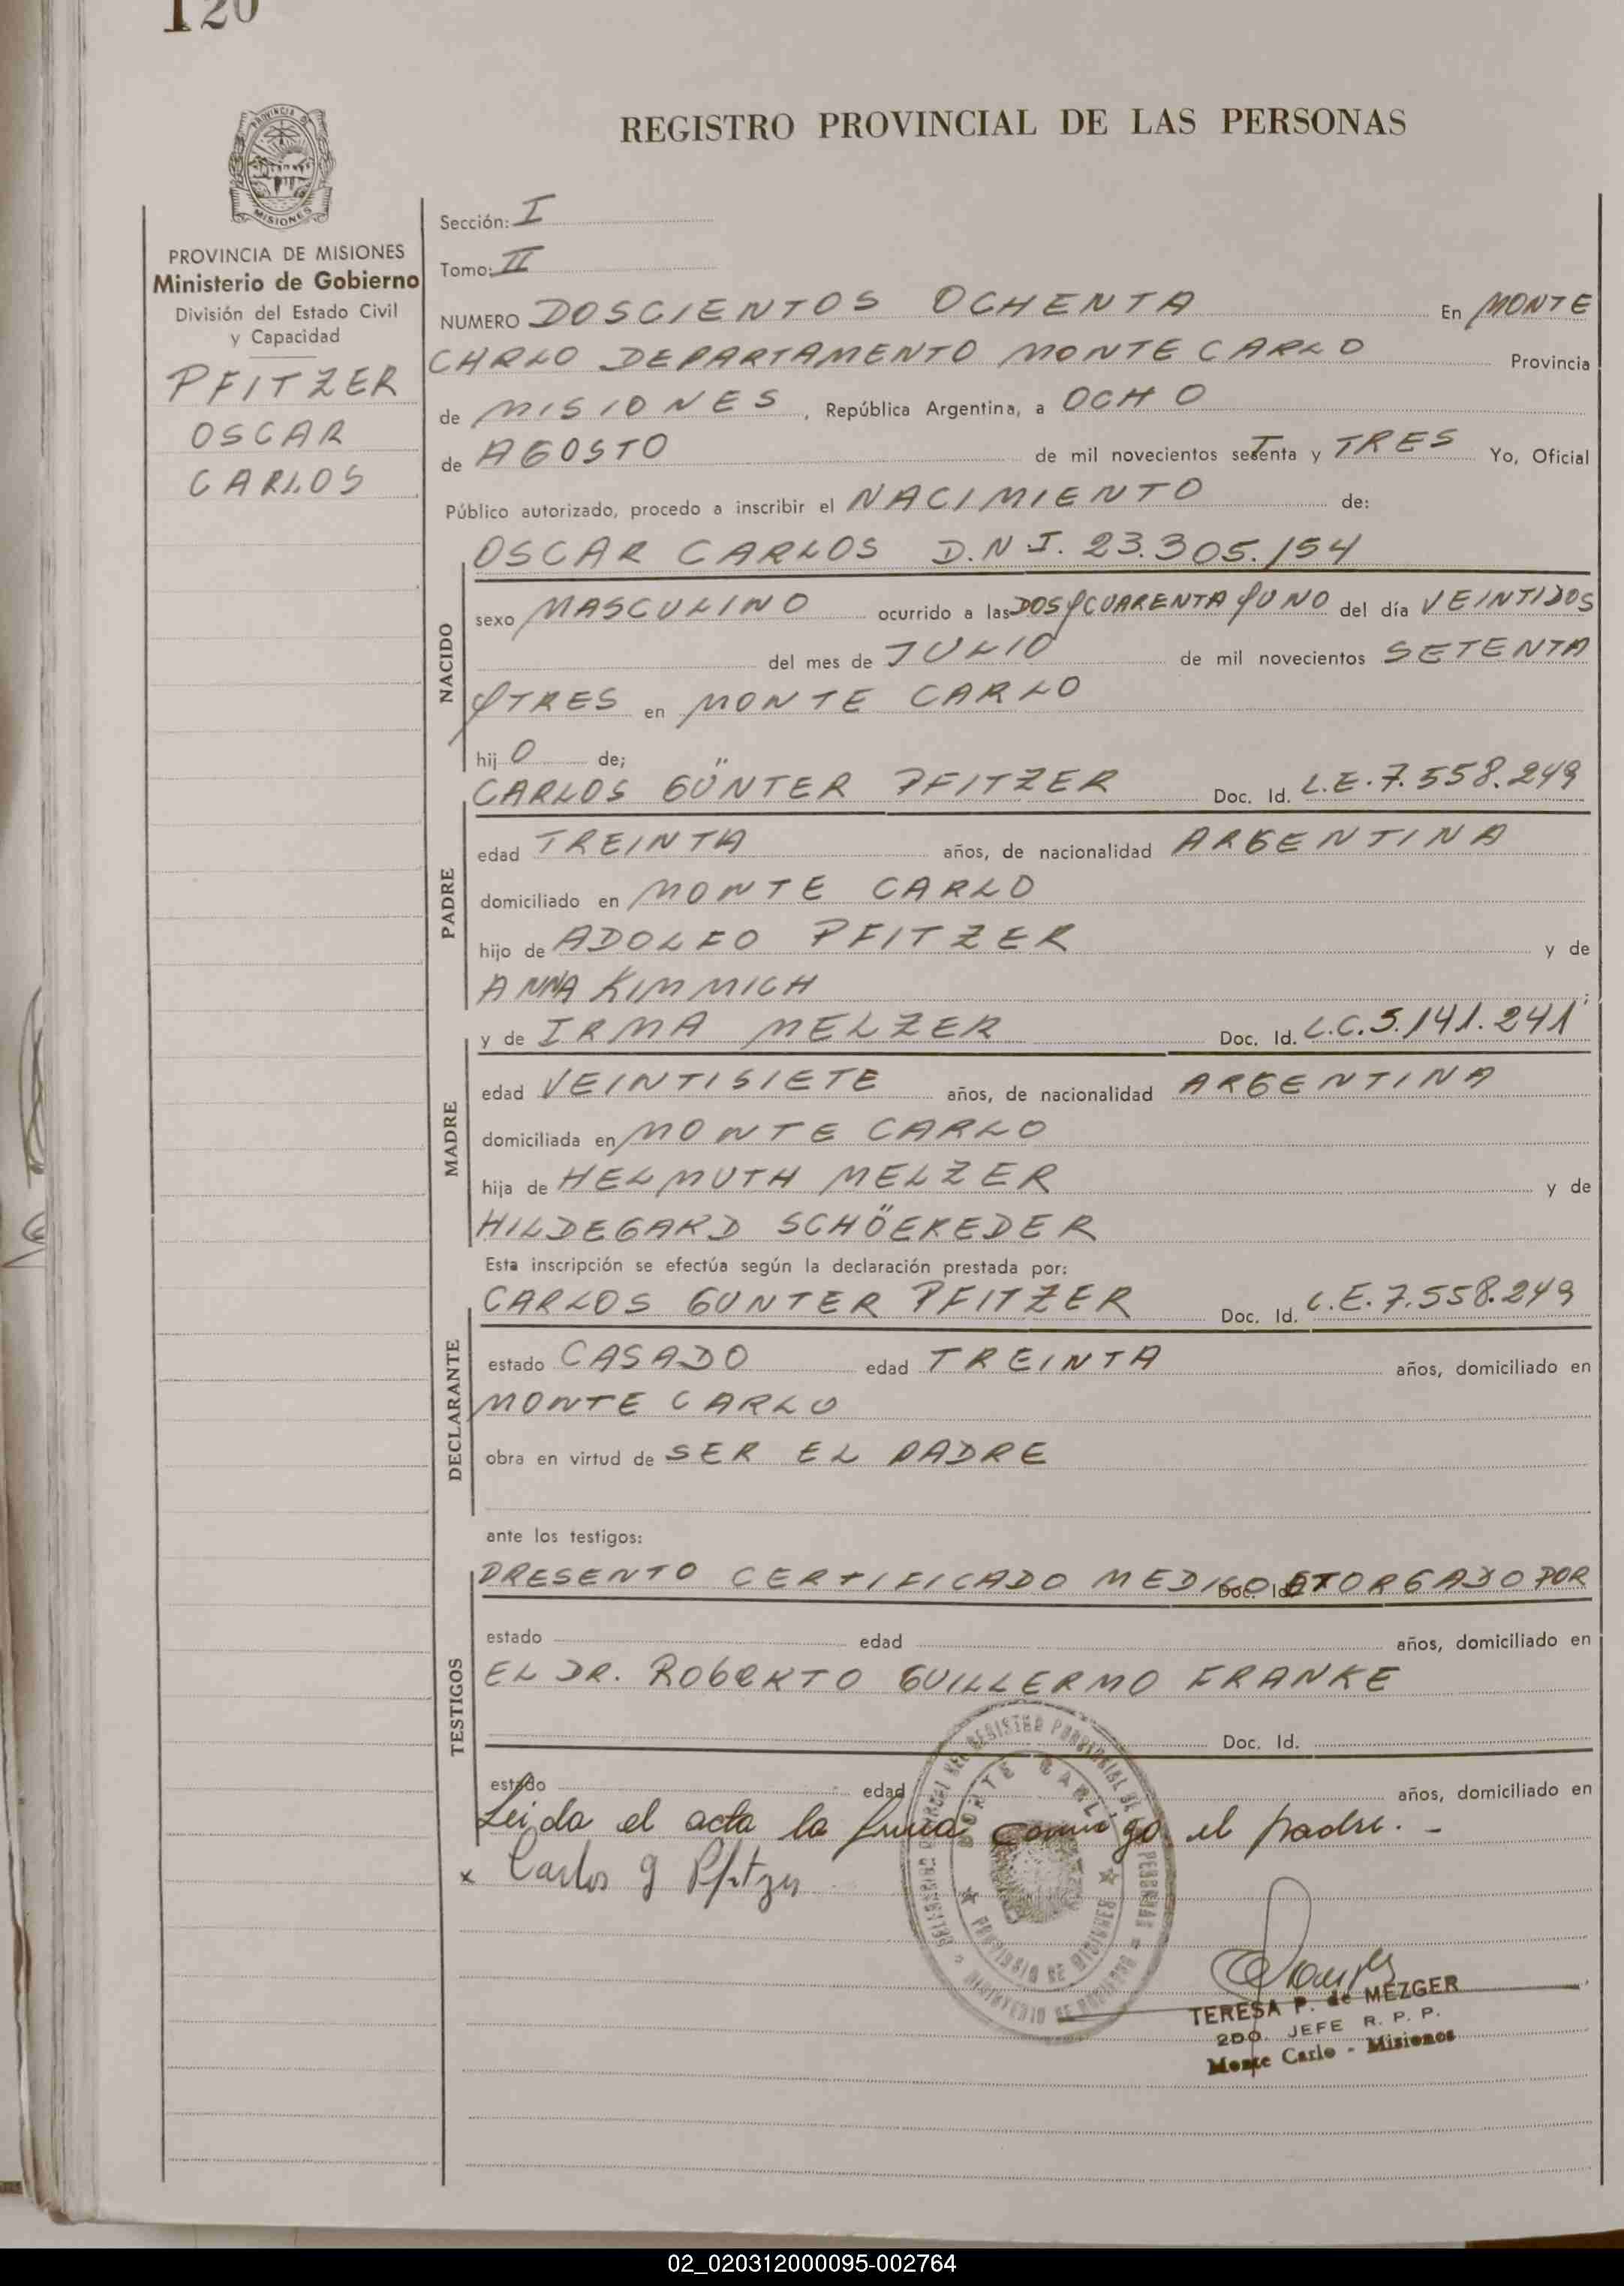 120
REGISTRO PROVINCIAL DE LAS PERSONAS
PROVINCIA DE MISIONES
Ministerio de Gobierno
División del Estado Civil
y Capacidad
PFITZER
OSCAR
CARLOS
Sección: I
Tomo: II
NUMERO DOSCIENTOS OCHENTA En MONTE
CARLO DEPARTAMENTO MONTE CARLO Provincia
de MISIONES, República Argentina, a OCHO
de AGOSTO de mil novecientos setenta y TRES Yo, Oficial
Público autorizado, procedo a inscribir el NACIMIENTO de:
NACIDO
OSCAR CARLOS D.N.I. 23.305.154
sexo MASCULINO ocurrido a las DOS Y CUARENTA Y UNO del día VEINTIDOS
del mes de JULIO de mil novecientos SETENTA
Y TRES en MONTE CARLO
hij O de;
PADRE
CARLOS GÜNTER PFITZER Doc. Id. L.E. 7.558.249
edad TREINTA años, de nacionalidad ARGENTINA
domiciliado en MONTE CARLO
hijo de ADOLFO PFITZER y de
ANNA KIMMICH;
MADRE
y de IRMA MELZER Doc. Id. L.C. 5.141.241
edad VEINTISIETE años, de nacionalidad ARGENTINA
domiciliada en MONTE CARLO
hija de HELMUTH MELZER y de
HILDEGARD SCHÖEREDER
Esta inscripción se efectúa según la declaración prestada por:
DECLARANTE
CARLOS GUNTER PFITZER Doc. Id. L.E. 7.558.249
estado CASADO edad TREINTA años, domiciliado en
MONTE CARLO
obra en virtud de SER EL PADRE
ante los testigos:
TESTIGOS
PRESENTO CERTIFICADO MEDICO Doc. Id. OTORGADO POR
estado edad años, domiciliado en
EL DR. ROBERTO GUILLERMO FRANKE
Doc. Id.
estado edad años, domiciliado en
Leida el acta la firma conmigo el padre. -
x Carlos G Pfitzer
MONTE CARLO
PROVINCIA DE MISIONES
TERESA P. de MEZGER
2DO. JEFE R. P. P.
Monte Carlo - Misiones
02_020312000095-002764